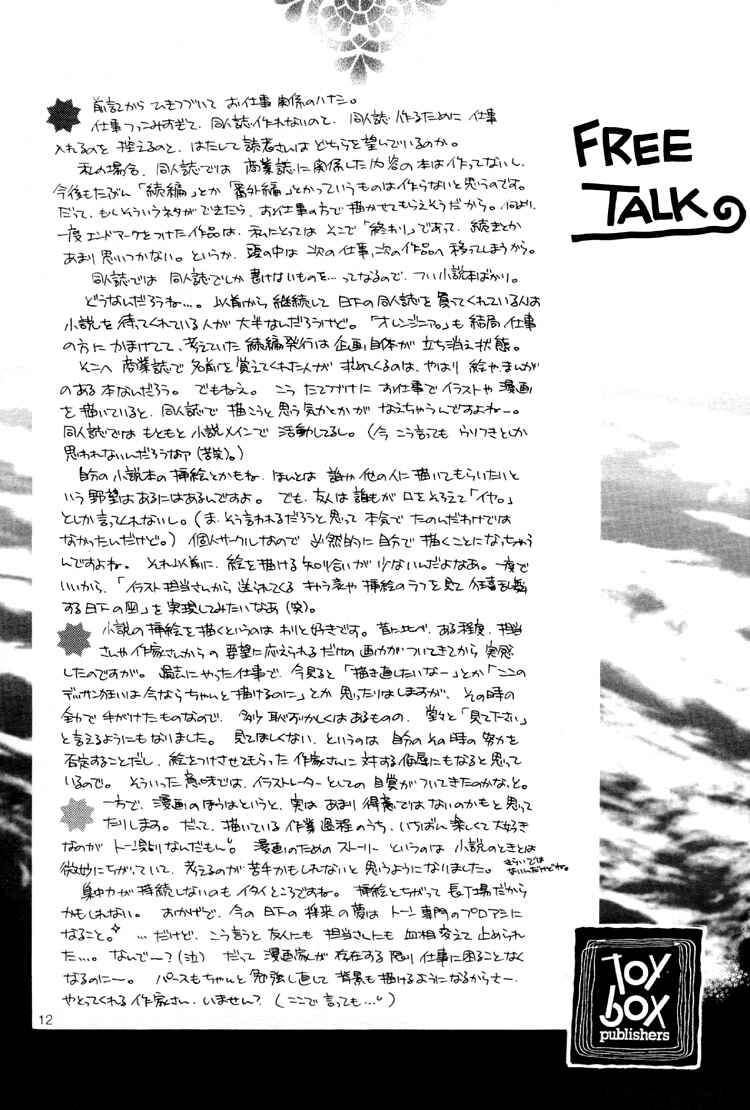 FREE
TALK
前記から ひきつづいて お仕事関係のハナシ。
仕事つっこみすぎて、同人誌作れないのと、同人誌作るために仕事
入れるのを控えるのと、はたして読者さんはどちらを望んでいるのか。
私の場合、同人誌では 商業誌に関係した内容の本は作ってないし、
今後もたぶん「続編」とか「番外編」とかっていうものは作らないと思うのです。
だって、もしそういうネタができたら、お仕事の方で描かせてもらえそうだから。何より、
一度エンドマークをつけた作品は、私にとっては そこで「終わり」であって、続きとか
あまり思いつかない。というか、頭の中は 次の仕事、次の作品へ移ってしまうから。
同人誌では 同人誌でしか書けないものを…ってなるので、つい小説本ばかり。
どうなんだろうね…。以前から継続して日下の同人誌を買ってくれている人は
小説を待ってくれている人が大半なんだろうけど。「オレンジニア」も結局仕事
の方にかまけてて、考えていた続編発行は企画自体が立ち消え状態。
そこへ商業誌で名前を覚えてくれた人が求めてくるのは、やはり絵や、まんが
のある本なんだろう。でもねえ。こう たてつづけに お仕事でイラストや漫画
を描いていると、同人誌で描こうと思う気力とかが なえちゃうんですよねー。
同人誌ではもともと小説メインで活動してるし。(今こう言っても
思われないんだろうなァ(苦笑)。)
自分の小説本の挿絵とかもね、ほんとは 誰か他の人に描いてもらいたいと
いう野望はあるにはあるんですよ。でも、友人は誰もが口をそろえて「イヤ。」
としか言ってくれないし。(ま、そう言われるだろうと思って本気で たのんだわけでは
なかったんだけど。)個人サークルなので必然的に自分で描くことになっちゃう
んですよね。それ以前に、絵を描ける知り合いが少ないんだよなあ。一度で
いいから、「イラスト担当さんから送られてくるキャラ表や挿絵のラフを見て狂喜乱舞
する日下の図」を実現してみたいなあ(笑)。
小説の挿絵を描くというのは わりと好きです。昔に比べ、ある程度、担当
さんや作家さんからの要望に応えられるだけの画力がついてきてから実感
したのですが。過去にやった仕事で、今見ると「描き直したいなー」とか「ここの
デッサン狂いは今ならちゃんと描けるのに」とか思ったりはしますが、その時の
全力で手がけたものなので、多少恥ずかしくはあるものの、堂々と「見て下さい」
と言えるようにもなりました。見てほしくない、というのは 自分のその時の努力を
否定することだし、絵をつけさせてもらった作家さんに対する侮辱にもなると思って
いるので。そういった意味では、イラストレーターとしての自覚がついてきたのかな、と。
一方で、漫画のほうはというと、実は あまり得意ではないのかもと思って
たりします。だって、描いている作業過程のうち、いちばん楽しくて大好き
なのが トーン貼りなんだもん。漫画のためのストーリーというのは 小説のときとは
微妙にちがっていて、考えるのが苦手かもしれないと思うようになりました。きらいでは
ないんだけどね。
集中力が持続しないのもイタイところですね。挿絵とちがって長丁場だから
かもしれない。おかげで、今の日下の将来の夢はトーン専門のプロアシに
なること。…だけど、こう言うと友人にも担当さんにも血相変えて止められ
た…。なんでー?(泣) だって漫画家が存在する限り仕事に困ることなく
なるのにー。パースもちゃんと勉強し直して背景も描けるようになるからさー、
やとってくれる作家さん、いません?(ここで言っても…)
12
TOY
BOX
publishers